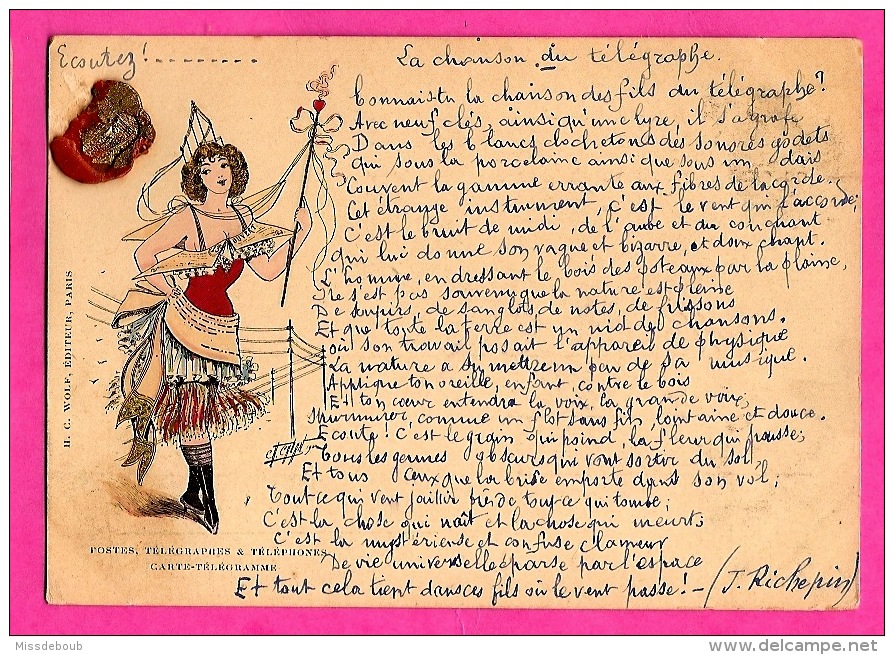 Ecoutez!........
La chanson du télégraphe.
Connais-tu la chanson des fils du télégraphe?
Avec neuf clés, ainsi qu'une lyre, il s'agrafe
Dans les blancs clochetons des sonores godets
qui sous la porcelaine ainsi que sous un dais
Couvent la gamme errante aux fibres de la corde.
Cet étrange instrument, c'est le vent qui l'accorde;
C'est le bruit de midi, de l'aube et du couchant
qui lui donne son vague et bizarre, et doux chant.
L'homme, en dressant le bois des poteaux par la plaine,
Ne s'est pas souvenu que la nature est pleine
De soupirs, de sanglots de notes, de frissons
Et que toute la terre est un nid de chansons.
où son travail posait l'appareil de physique
La nature a su mettre un peu de sa musique.
Applique ton oreille, enfant, contre le bois
Et ton cœur entendra la voix, la grande voix,
Murmurer, comme un flot sans fin, lointaine et douce.
Ecoute! C'est le grain qui poind, la fleur qui pousse;
Tous les germes obscurs qui vont sortir du sol
Et tous ceux que la brise emporte dans son vol;
Tout ce qui veut jaillir près de tout ce qui tombe;
C'est la chose qui naît et la chose qui meurt;
C'est la mystérieuse et confuse clameur
De vie universelle éparse par l'espace
Et tout cela tient dans ces fils où le vent passe! — (J. Richepin)
H. C. WOLF, ÉDITEUR, PARIS
POSTES, TÉLÉGRAPHES & TÉLÉPHONES
CARTE-TÉLÉGRAMME
Missdeboub
www.delcampe.net